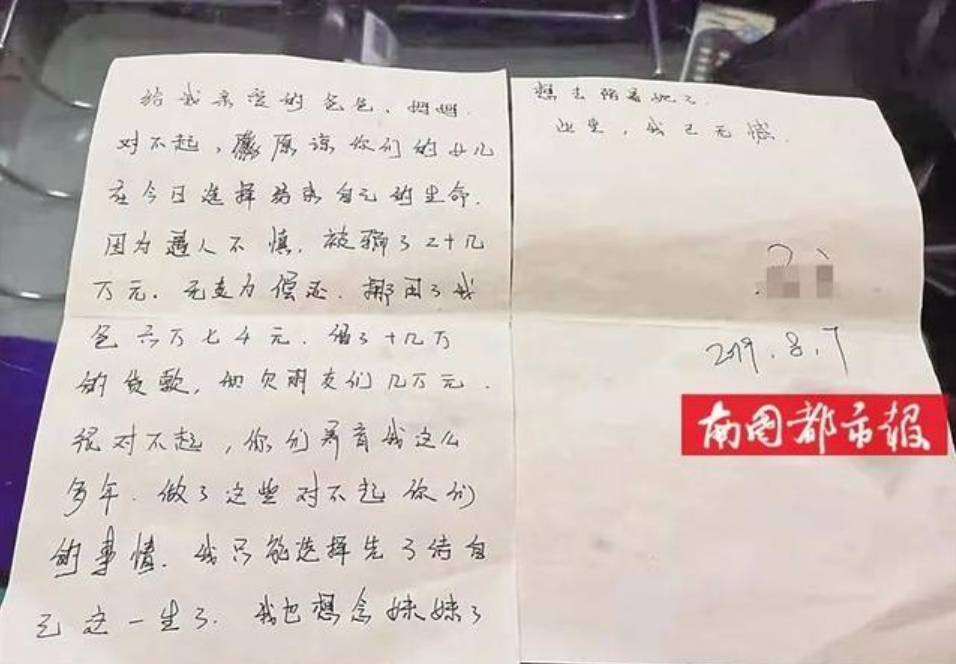 给我亲爱的爸爸、妈妈.
对不起,原谅你们的女儿
在今日选择结束自己的生命.
因为遇人不慎.被骗了二十几
万元.无力偿还.挪用了我
爸六万七千元.借了十几万
的贷款,和欠朋友们几万元.
很对不起,你们养育我这么
多年.做了这些对不起你们
的事情.我只能选择先了结自
己这一生了.我也想念妹妹了
想去陪着她了.
此生,我已无憾.
2019.8.7
南国都市报